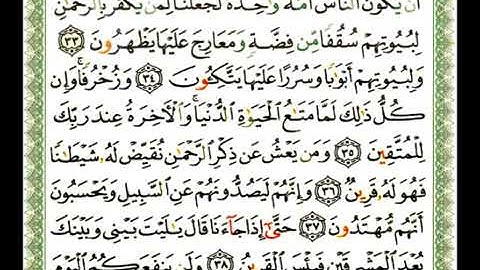 أَن يَكُونَ ٱلنَّاسُ أُمَّةً وَٰحِدَةً لَّجَعَلْنَا لِمَن يَكْفُرُ بِٱلرَّحْمَٰنِ
لِبُيُوتِهِمْ سُقُفًا مِّن فِضَّةٍ وَمَعَارِجَ عَلَيْهَا يَظْهَرُونَ ٣٣
وَلِبُيُوتِهِمْ أَبْوَٰبًا وَسُرُرًا عَلَيْهَا يَتَّكِـُٔونَ ٣٤ وَزُخْرُفًا وَإِن
كُلُّ ذَٰلِكَ لَمَّا مَتَٰعُ ٱلْحَيَوٰةِ ٱلدُّنْيَا وَٱلْءَاخِرَةُ عِندَ رَبِّكَ
لِلْمُتَّقِينَ ٣٥ وَمَن يَعْشُ عَن ذِكْرِ ٱلرَّحْمَٰنِ نُقَيِّضْ لَهُۥ شَيْطَٰنًا
فَهُوَ لَهُۥ قَرِينٌ ٣٦ وَإِنَّهُمْ لَيَصُدُّونَهُمْ عَنِ ٱلسَّبِيلِ وَيَحْسَبُونَ
أَنَّهُم مُّهْتَدُونَ ٣٧ حَتَّىٰٓ إِذَا جَآءَنَا قَالَ يَٰلَيْتَ بَيْنِى وَبَيْنَكَ
بُعْدَ ٱلْمَشْرِقَيْنِ فَبِئْسَ ٱلْقَرِينُ ٣٨ وَلَن يَنفَعَكُمُ ٱلْيَوْمَ